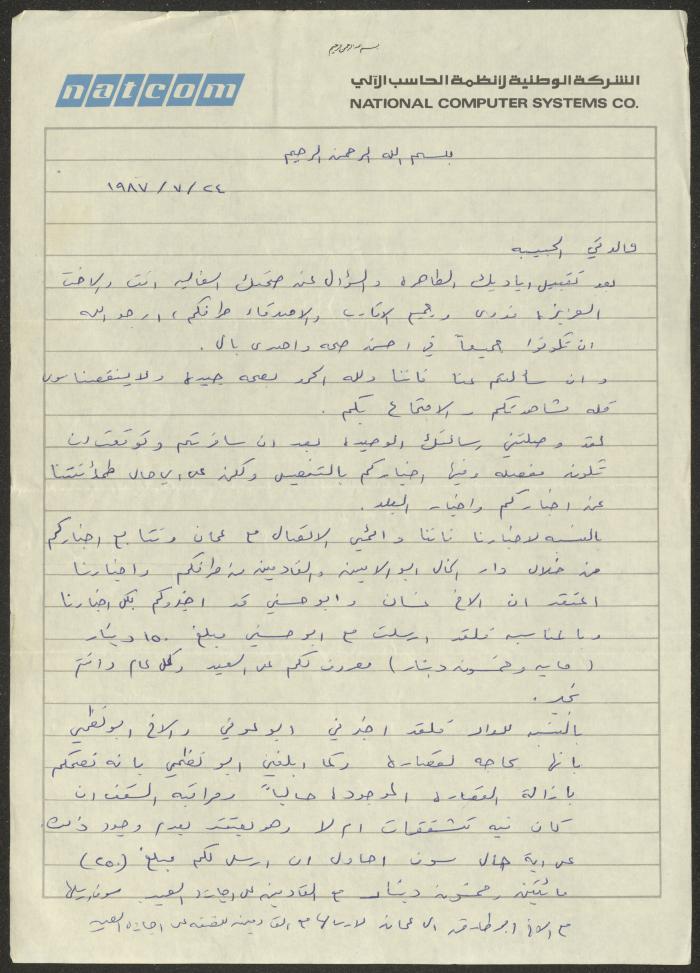 natcom
الشركة الوطنية لأنظمة الحاسب الآلي
NATIONAL COMPUTER SYSTEMS CO.
بسم الله الرحمن الرحيم
١٩٨٧/٧/٢٤
والدتي الحبيبه
بعد تقبيل اياديك الطاهره والسؤال عن صحتك الغاليه انت والاخت
العزيزه فدوى وجميع الاقارب والاصدقاء طرفكم، ارجو الله
ان تكونوا جميعاً في احسن صحه واهدى بال.
وان سألتم عنا فاننا ولله الحمد بصحه جيده ولا ينقصنا سوى
قله مشاهدتكم والاجتماع بكم.
لقد وصلتني رسالتك الوحيده بعد ان سافرتم وتوقعت ان
تكون مفصله وفيها اخباركم بالتفصيل ولكن على اي حال طمأنتنا
عن اخباركم واخبار البلد.
بالنسبه لاخبارنا فاننا دائمي الاتصال مع عمان ونتابع اخباركم
من خلال دار الخال ابو الامين والقادمين من طرفكم واخبارنا
اعتقد ان الاخ غسان وابو حسني قد اخبروكم بكل اخبارنا
وبالمناسبه فلقد ارسلت مع ابو حسني مبلغ ١٥٠ دينار
(مايه وخمسون دينار) مصروف لكم على العيد وكل عام وانتم
بخير.
بالنسبه للدار فلقد اخبرني ابو عوني والاخ ابو نظمي
بانها بحاجه لقصاره وكما ابلغني ابو نظمي بانه نصحكم
بازالة القصاره الموجوده حالياً ومراقبه السقف ان
كان فيه تشققات ام لا وهو يعتقد بعدم وجود ذلك.
على اية حال سوف احاول ان ارسل لكم مبلغ (٢٥٠)
مائتين وخمسون دينار مع القادمين على اجازة العيد سوف ارسلها
مع الاخ ابو طارق الى عمان لارسالها مع القادمين للضفه على اجازة العيد